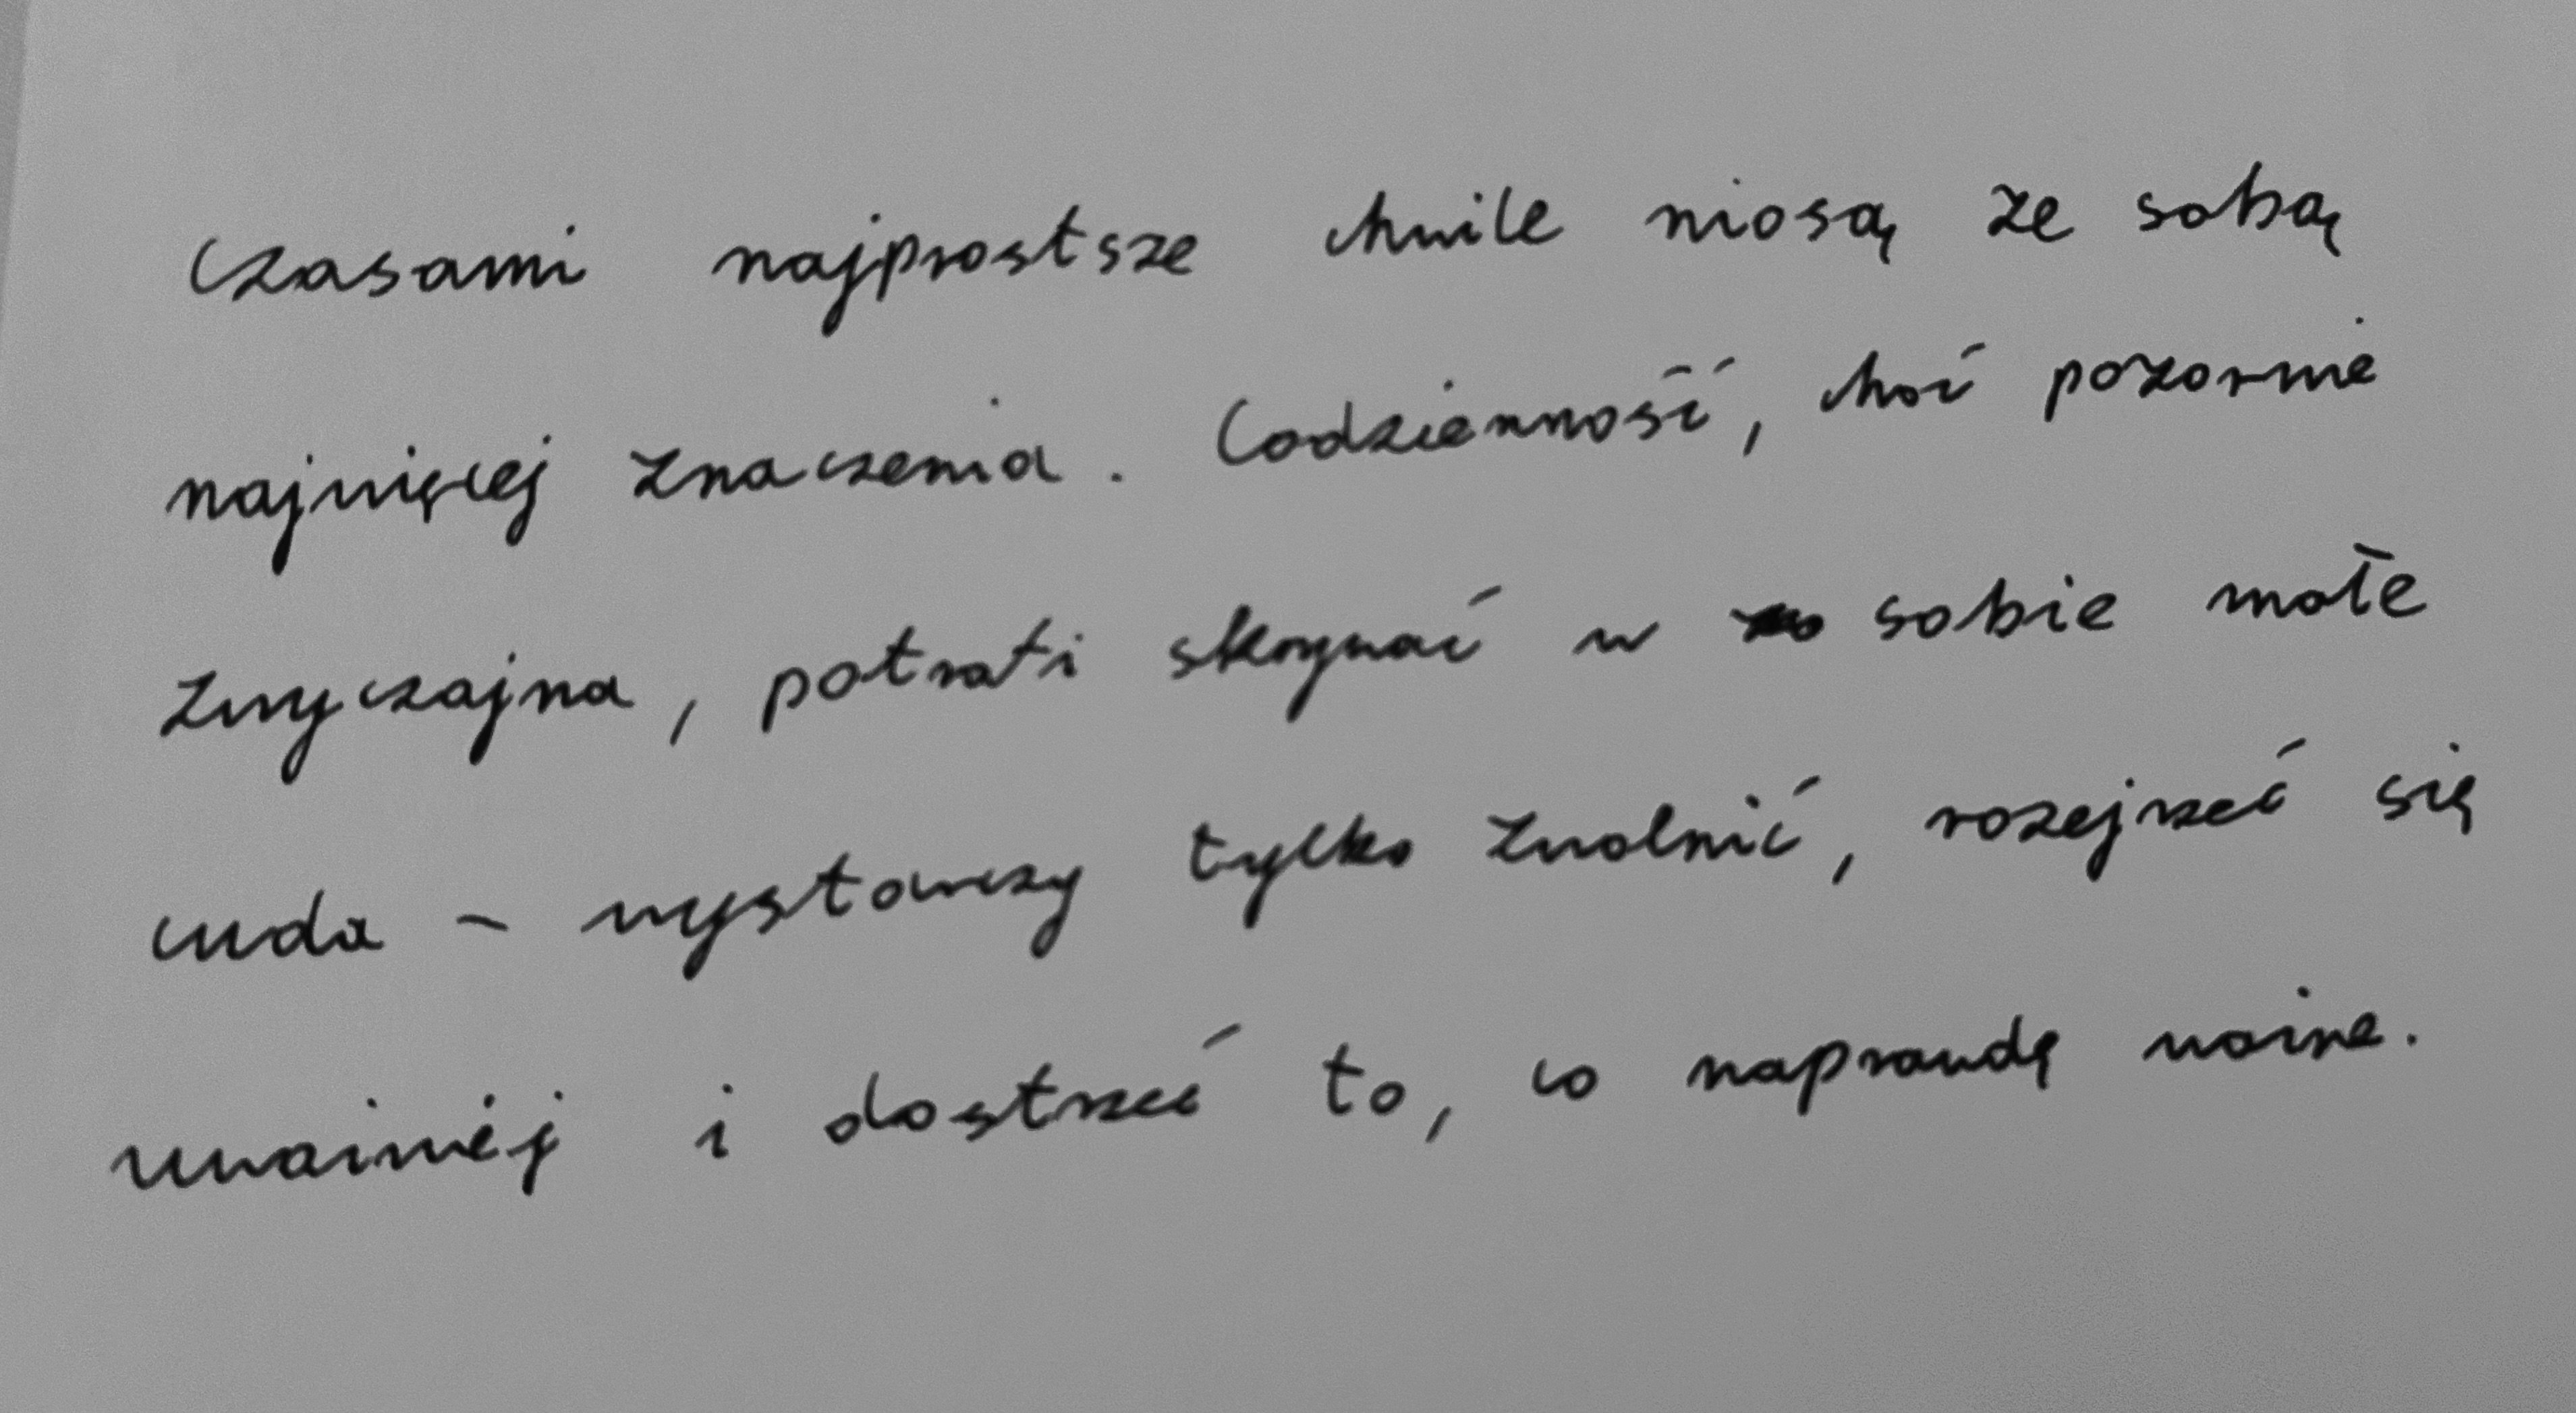 Czasami najprostsze chwile niosą ze sobą
najwięcej znaczenia. Codzienność, choć pozornie
zwyczajna, potrafi skrywać w sobie małe
cuda - wystarczy tylko zwolnić, rozejrzeć się
uważniej i dostrzec to, co naprawdę ważne.